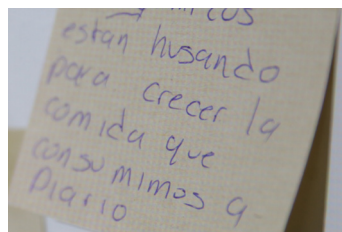 estan husando
para crecer la
comida que
consumimos a
Diario